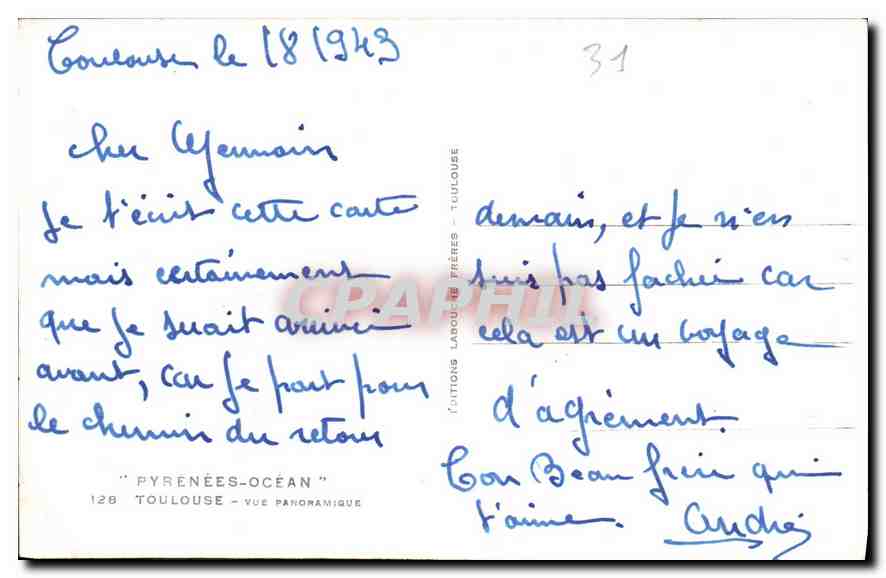 Toulouse le 18 1943
31
cher Germain
Je t'écrit cette carte
mais certainement
que je serait arrivé
avant, car je part pour
le chemin du retour
"PYRÉNÉES-OCÉAN"
128 TOULOUSE - VUE PANORAMIQUE
ÉDITIONS LABOUCHE FRÈRES - TOULOUSE
CPAPHIL
demain, et je n'en
suis pas faché car
cela est un voyage
d'agrément.
Ton Beau frère qui
t'aime. André